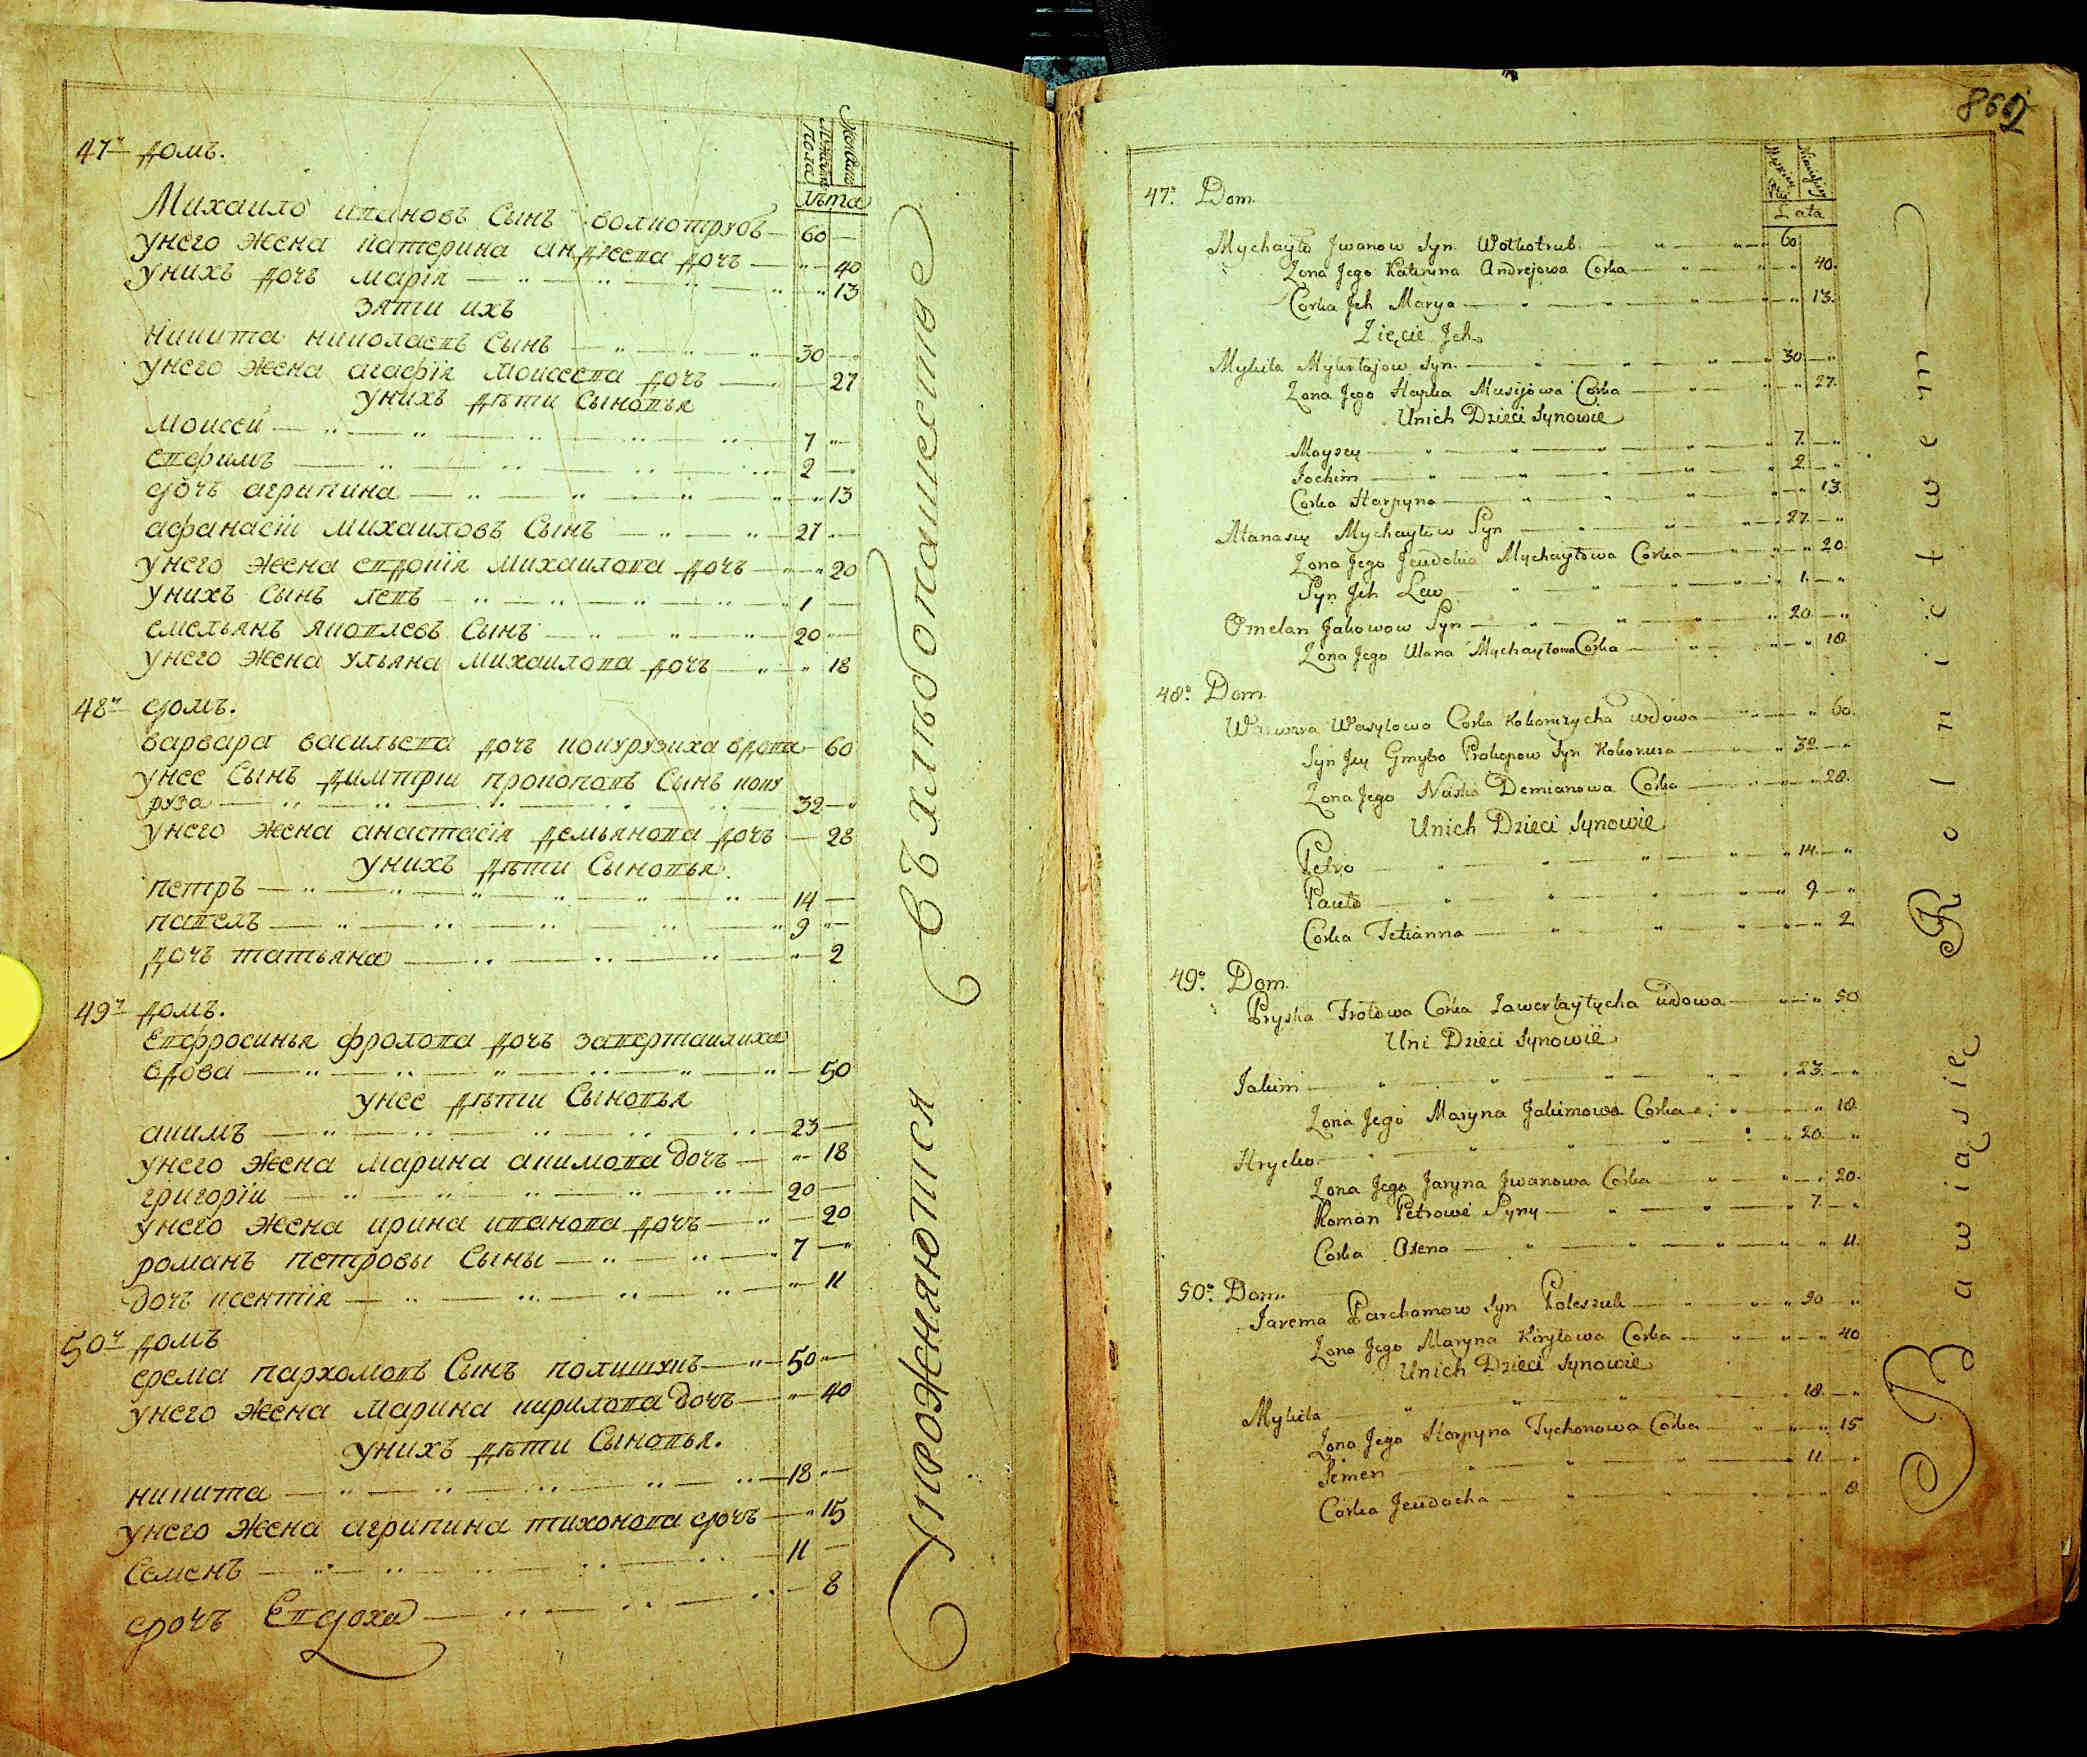 Мужеска пола
Женска
Лѣта
47й домъ.
Михаило ивановъ Сынъ волкотрубъ 60
унего жена катерина андреева дочь 40
унихъ дочь марія 13
зяти ихъ
никита николаевъ Сынъ 30
унего жена агафія моисеева дочь 27
унихъ дѣти Сыновья
моисеи 7
ефимъ 2
дочь агрипина 13
афанасіи михаиловъ Сынъ 27
унего жена евдокія михаилова дочь 20
унихъ Сынъ левъ 1
емельянъ яковлевъ Сынъ 20
унего жена ульяна михаилова дочь 18
48й домъ.
варвара васильева дочь кокурузиха вдова 60
унее Сынъ димитріи прокоповъ Сынъ коку
руза 32
унего жена анастасія демьянова дочь 28
унихъ дѣти Сыновья.
петръ 14
павелъ 9
дочь татьяна 2
49й домъ.
Евфросинья фролова дочь завертаилиха
вдова 50
унее дѣти Сыновья
акимъ 23
унего жена марина акимова дочь 18
григоріи 20
унего жена ирина иванова дочь 20
романъ петровы Сыны 7
дочь ксентія 11
50й домъ
ерема пархомовъ Сынъ полишукъ 50
унего жена марина кирилова дочь 40
унихъ дѣти Сыновья.
никита 18
унего жена агрипина тихонова дочь 15
Семенъ 11
дочь Евдоха 8
Упрожняются въ хлѣбопашестве
862
Lata
47o. Dom.
Mychayło Jwanow Syn Wołkotrub 60
Zona Jego Kateryna Andrejowa Corka 40.
Corka Jch Marya 13.
Zięcie Jch
Mykita Mykołajow Syn 30
Zona Jego Hapka Musijowa Corka 27.
Unich Dzieci Synowie
Moysey 7.
Jochim 2
Corka Harpyna 13.
Atanasiy Mychayłow Syn 27
Zona Jego Jeudokia Mychayłowa Corka 20
Syn Jch Lew 1.
Omelan Jakowow Syn 20
Zona Jego Ulana Mychayłowa Corka 18
48o. Dom.
Warwara Wasylowa Corka Kokorzycha wdowa 60.
Syn Jey Gmytro Prokopow Syn Kokoruza 32
Zona Jego Nastia Demianowa Corka 28.
Unich Dzieci Synowie
Petro 14
Pawło 9
Corka Tetianna 2
49o. Dom.
Pryska Frołowa Corka Zawertaytycha wdowa 50
Uni Dzieci Synowie
Jakim 23.
Zona Jego Maryna Jakimowa Corka 18
Hrycko 20
Zona Jego Jaryna Jwanowa Corka 20.
Roman Petrowe Syny 7.
Corka Oxena 11.
50o. Dom.
Jarema Parchomow Syn Poleszuk 50
Zona Jego Maryna Kiryłowa Corka 40
Unich Dzieci Synowie
Mykita 18.
Zona Jego Harpyna Tychonowa Corka 15
Semen 11
Corka Jeudocha 8
Bawiąsię Rolnictwem